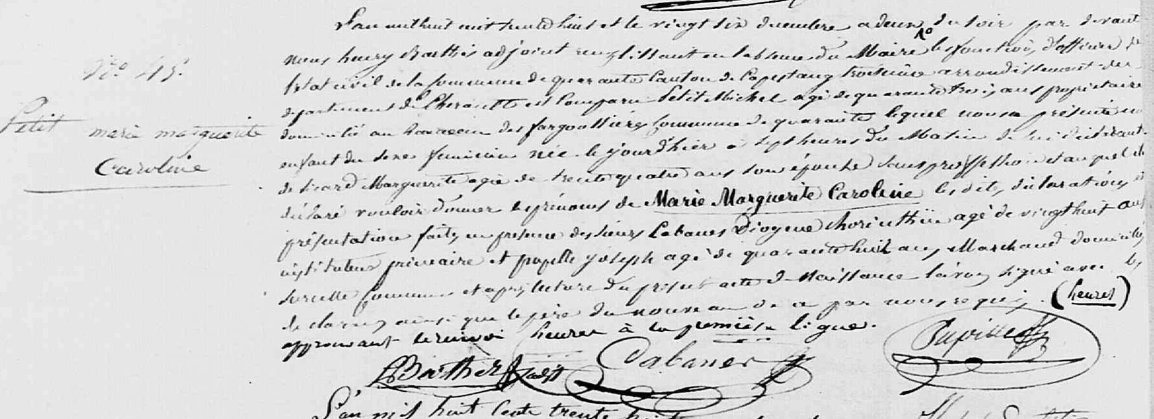 L'an mil huit cent trente huit et le vingt six decembre a deux du soir par devant
nous henry Barthès adjoint remplissant en absence du Maire les fonctions d'officier de
l'état civil de la Commune de quarante Canton de Capestang troisième arrondissement du
departement de l'herault est Comparu Petit Michel agé de quarante trois ans proprietaire
domicilié au hameau des fargouttieres Commune de quarante lequel nous a présenté un
enfant du sexe féminin née le jour d'hier a sept heures du Matin de lui déclarant
de Marguerite agée de trente quatre ans son épouse sans proffession et auquel il a
déclaré vouloir donner les prenoms de Marie Marguerite Caroline les dites déclarations et
présentation faites en presence des sieurs Cabanes Diogene agé de vingt huit ans
instituteur primaire et pupille joseph agé de quarante huit ans Marchand domiciliés
sur cette Commune et après lecture du present acte de Naissance l'avons signé avec les
declarants ainsi que le père du nouveau né a par nous requis. (heures)
approuvant le renvoi heures à la première ligne.
Barthès adjt Cabanes Pupille
N° 45.
Petit marie marguerite
Caroline
L'an mil huit cent trente huit